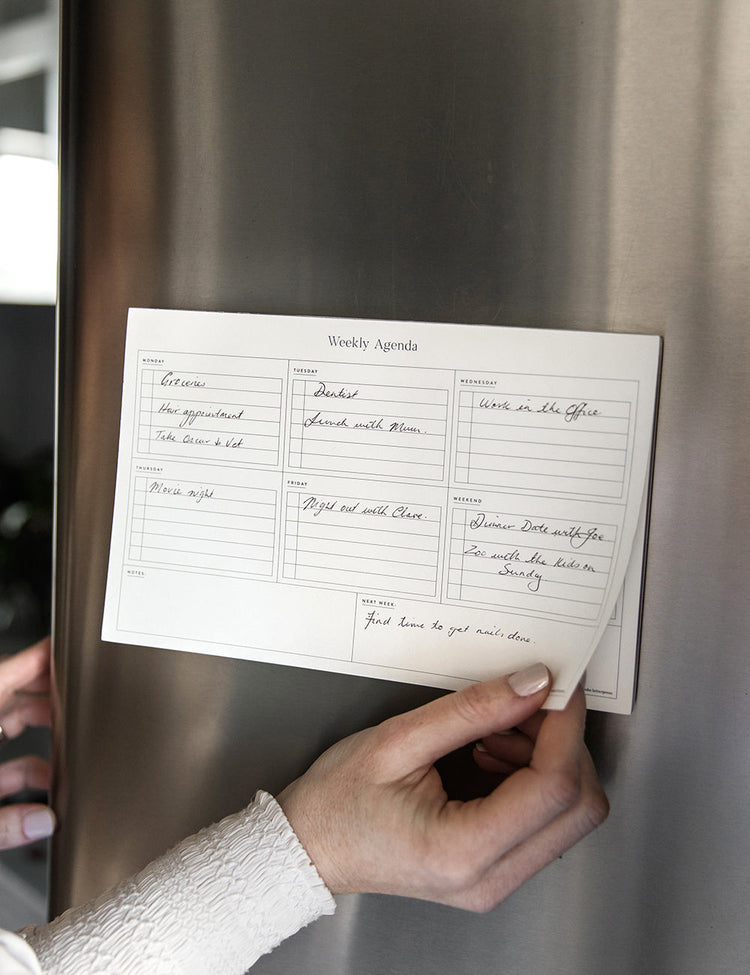 Weekly Agenda
MONDAY
Groceries
Hair appointment
Take Oscar to Vet
TUESDAY
Dentist
Lunch with Mum.
WEDNESDAY
Work in the Office
THURSDAY
Movie night
FRIDAY
Night out with Clare.
WEEKEND
Dinner Date with Joe
Zoo with the Kids on
Sunday
NOTES:
NEXT WEEK:
Find time to get nails done.